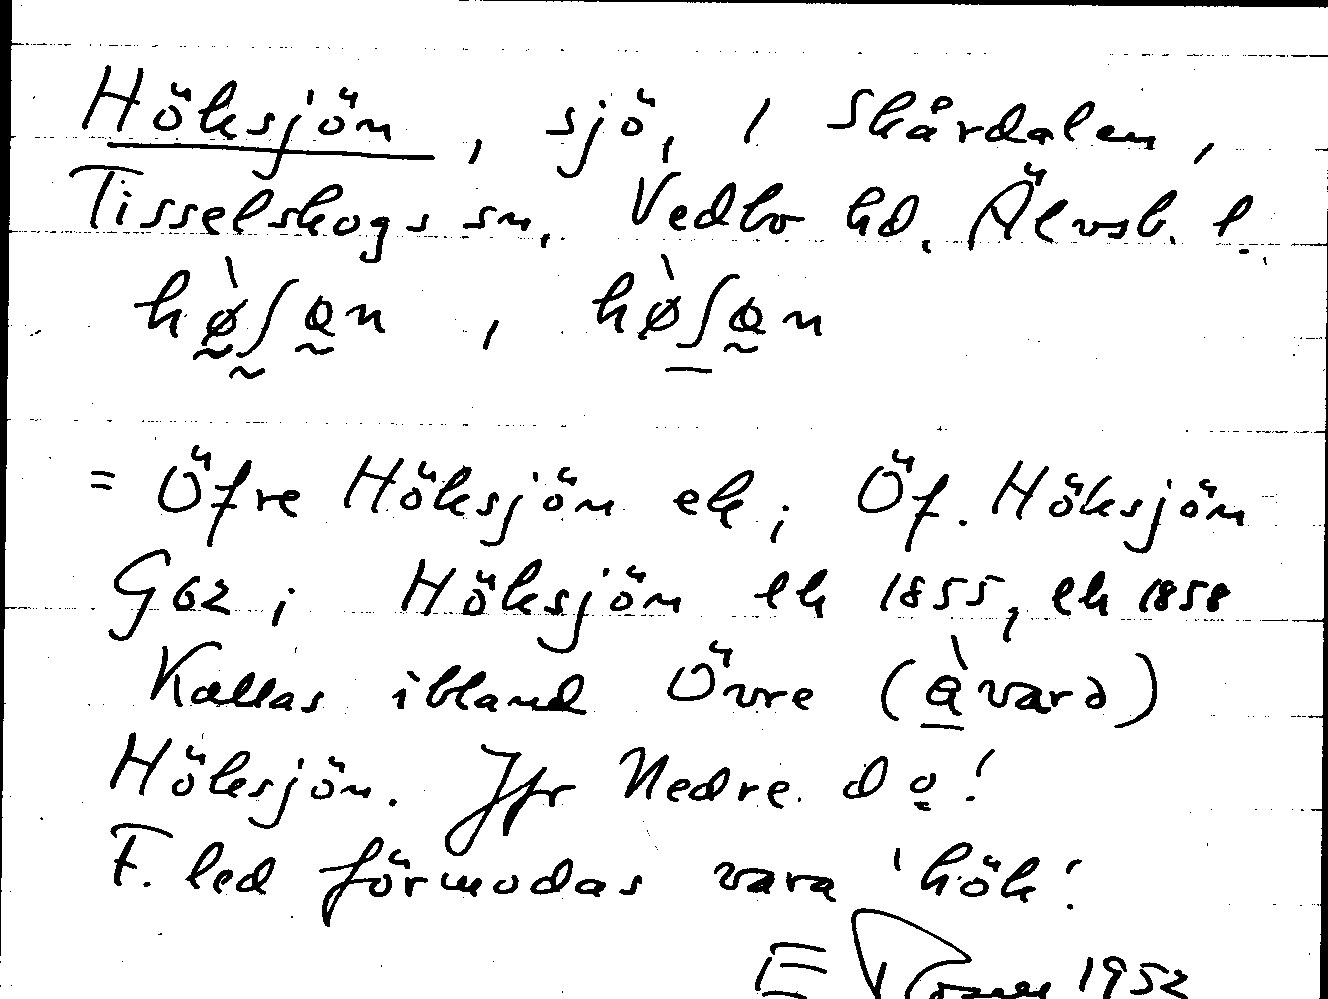 Höksjön, sjö, i Skårdalen,
Tisselskogs sn, Vedbo hd. Älvsb. l.
= Öfre Höksjön ek; Öf. Höksjön
G62; Höksjön ek 1855, ek 1858
Kallas ibland Övre
Höksjön. Jfr Nedre do!
F. led förmodas vara 'hök'.
E 1952